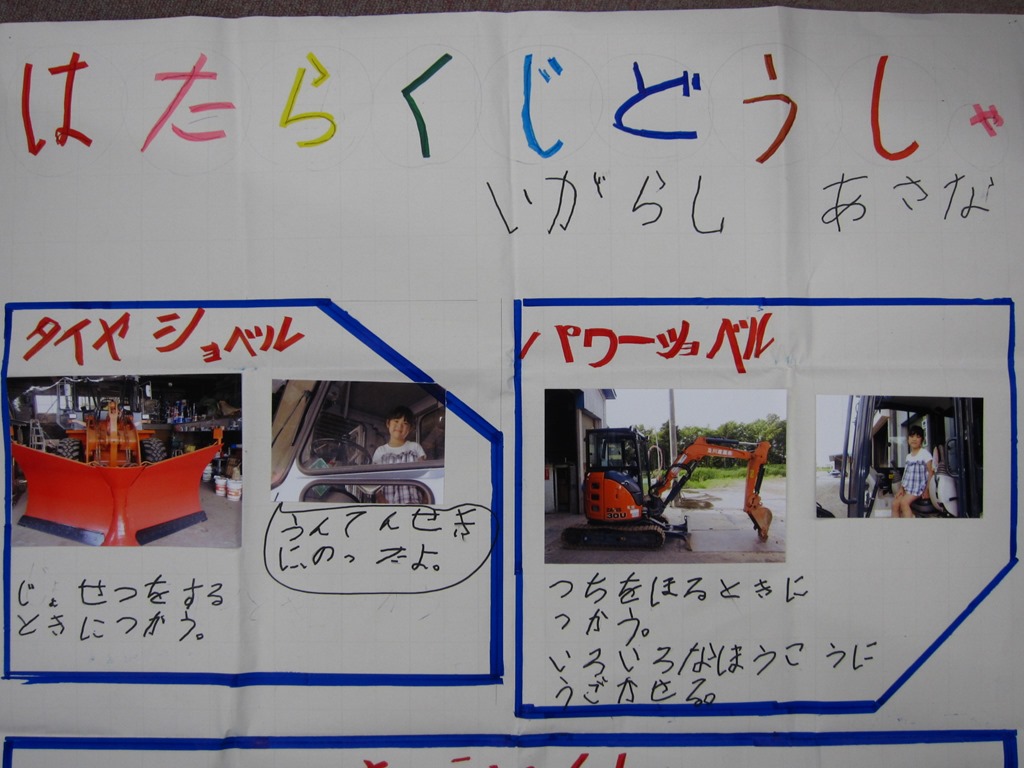 はたらくじどうしゃ
いがらし あさな
タイヤ ショベル
うんてんせき
に、のったよ。
じょせつをする
ときにつかう。
パワーショベル
30U
つちをほるときに
つかう。
いろいろなほうこうに
うごかせる。